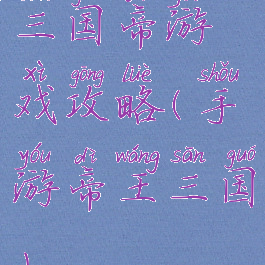 三国帝游
xì gōng lüè shǒu
戏攻略(手
yóu dì wáng sān guó
游帝王三国